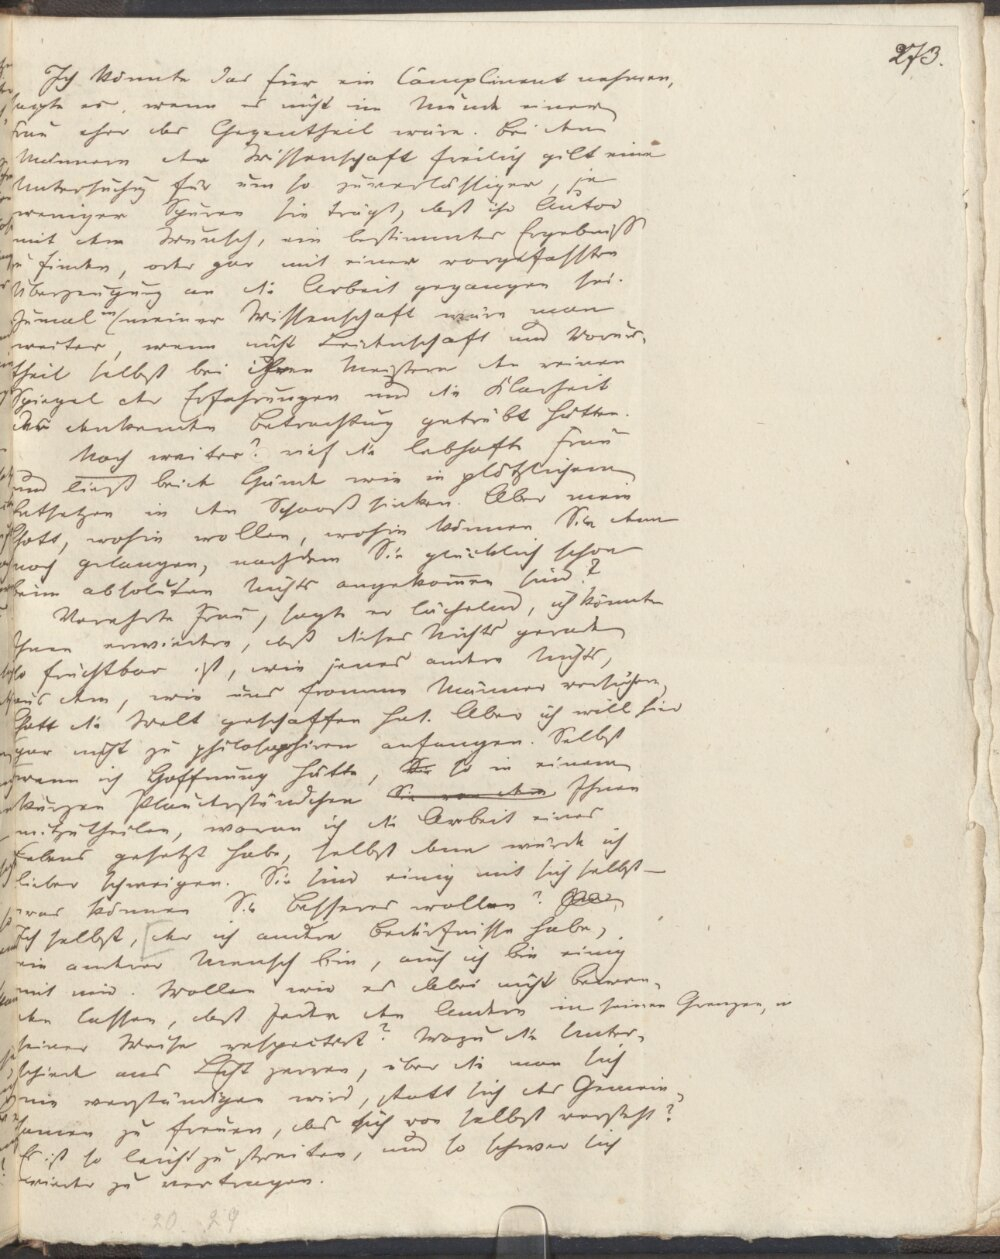 273.
Ich könnte das für ein Compliment nehmen,
sagte er, wenn es nicht im Munde einer
Frau eher das Gegentheil wäre. Bei den
Männern der Wissenschaft freilich gilt eine
Untersuchg für um so zuverlässiger, je
weniger Spuren sie trägt, daß ihr Autor
mit dem Wunsch, ein bestimmtes Ergebniß
zu finden, oder gar mit einer vorgefaßten
Überzeugung an die Arbeit gegangen sei.
Zumal in meiner Wissenschaft wäre man
weiter, wenn nicht Leidenschaft und Vorur-
theil selbst bei ihren Meistern den reinen
Spiegel der Erfahrungen und die Klarheit
der denkenden Betrachtung getrübt hätten.
Noch weiter? rief die lebhafte Frau
und ließ beide Hände wie in plötzlichem
Entsetzen in den Schooß sinken. Aber mein
Gott, wohin wollen, wohin können Sie denn
noch gelangen, nachdem Sie glücklich schon
beim absoluten Nichts angekommen sind?
Verehrte Frau, sagte er lächelnd, ich könnte
Ihnen erwiedern, daß dieses Nichts gerade
so fruchtbar ist, wie jenes andre Nichts,
aus dem, wie uns fromme Männer versichern,
Gott die Welt geschaffen hat. Aber ich will hier
gar nicht zu philosophiren anfangen. Selbst
wenn ich Hoffnung hätte, Sie so in einem
kurzen Plauderstündchen Ihnen
mitzutheilen, woran ich die Arbeit eines
Lebens gesetzt habe, selbst dann würde ich
lieber schweigen. Sie sind einig mit sich selbst –
was können Sie Besseres wollen?
Ich selbst, der ich andre Bedürfnisse habe,
ein andrer Mensch bin, auch ich bin einig
mit mir. Wollen wir es dabei nicht bewen-
den lassen, daß Jeder den Andern in seinen Grenzen, in
seiner Weise respectirt? Wozu die Unter-
schiede ans Licht zerren, über die man sich
nie verständigen wird, statt sich des Gemein-
samen zu freuen, das sich von selbst versteht?
Es ist so leicht zu streiten, und so schwer sich
wieder zu vertragen.
20. 29